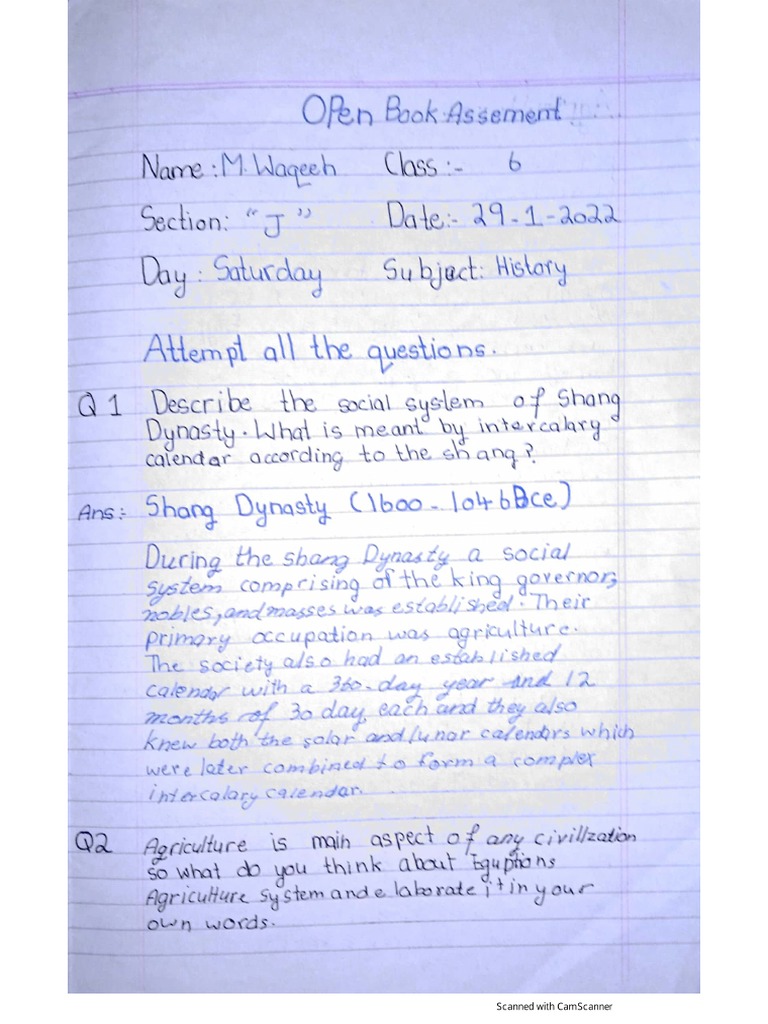 Open Book Assement
Name : M. Waqeeh Class :- 6
Section: "J" Date:- 29-1-2022
Day : Saturday Subject: History
Attempt all the questions.
Q 1 Describe the social system of Shang
Dynasty. What is meant by intercalary
calendar according to the shang?
Ans:- Shang Dynasty (1600-1046Bce)
During the shang Dynasty a social
system comprising of the king governor,
nobles, and masses was established. Their
primary occupation was agriculture.
The society also had an established
calendar with a 360-day year and 12
months of 30 day each and they also
knew both the solar and lunar calendars which
were later combined to form a complex
intercalary calendar.
Q2 Agriculture is main aspect of any civillzation
so what do you think about Eguptions
Agriculture system and elaborate it in your
own words.
Scanned with CamScanner